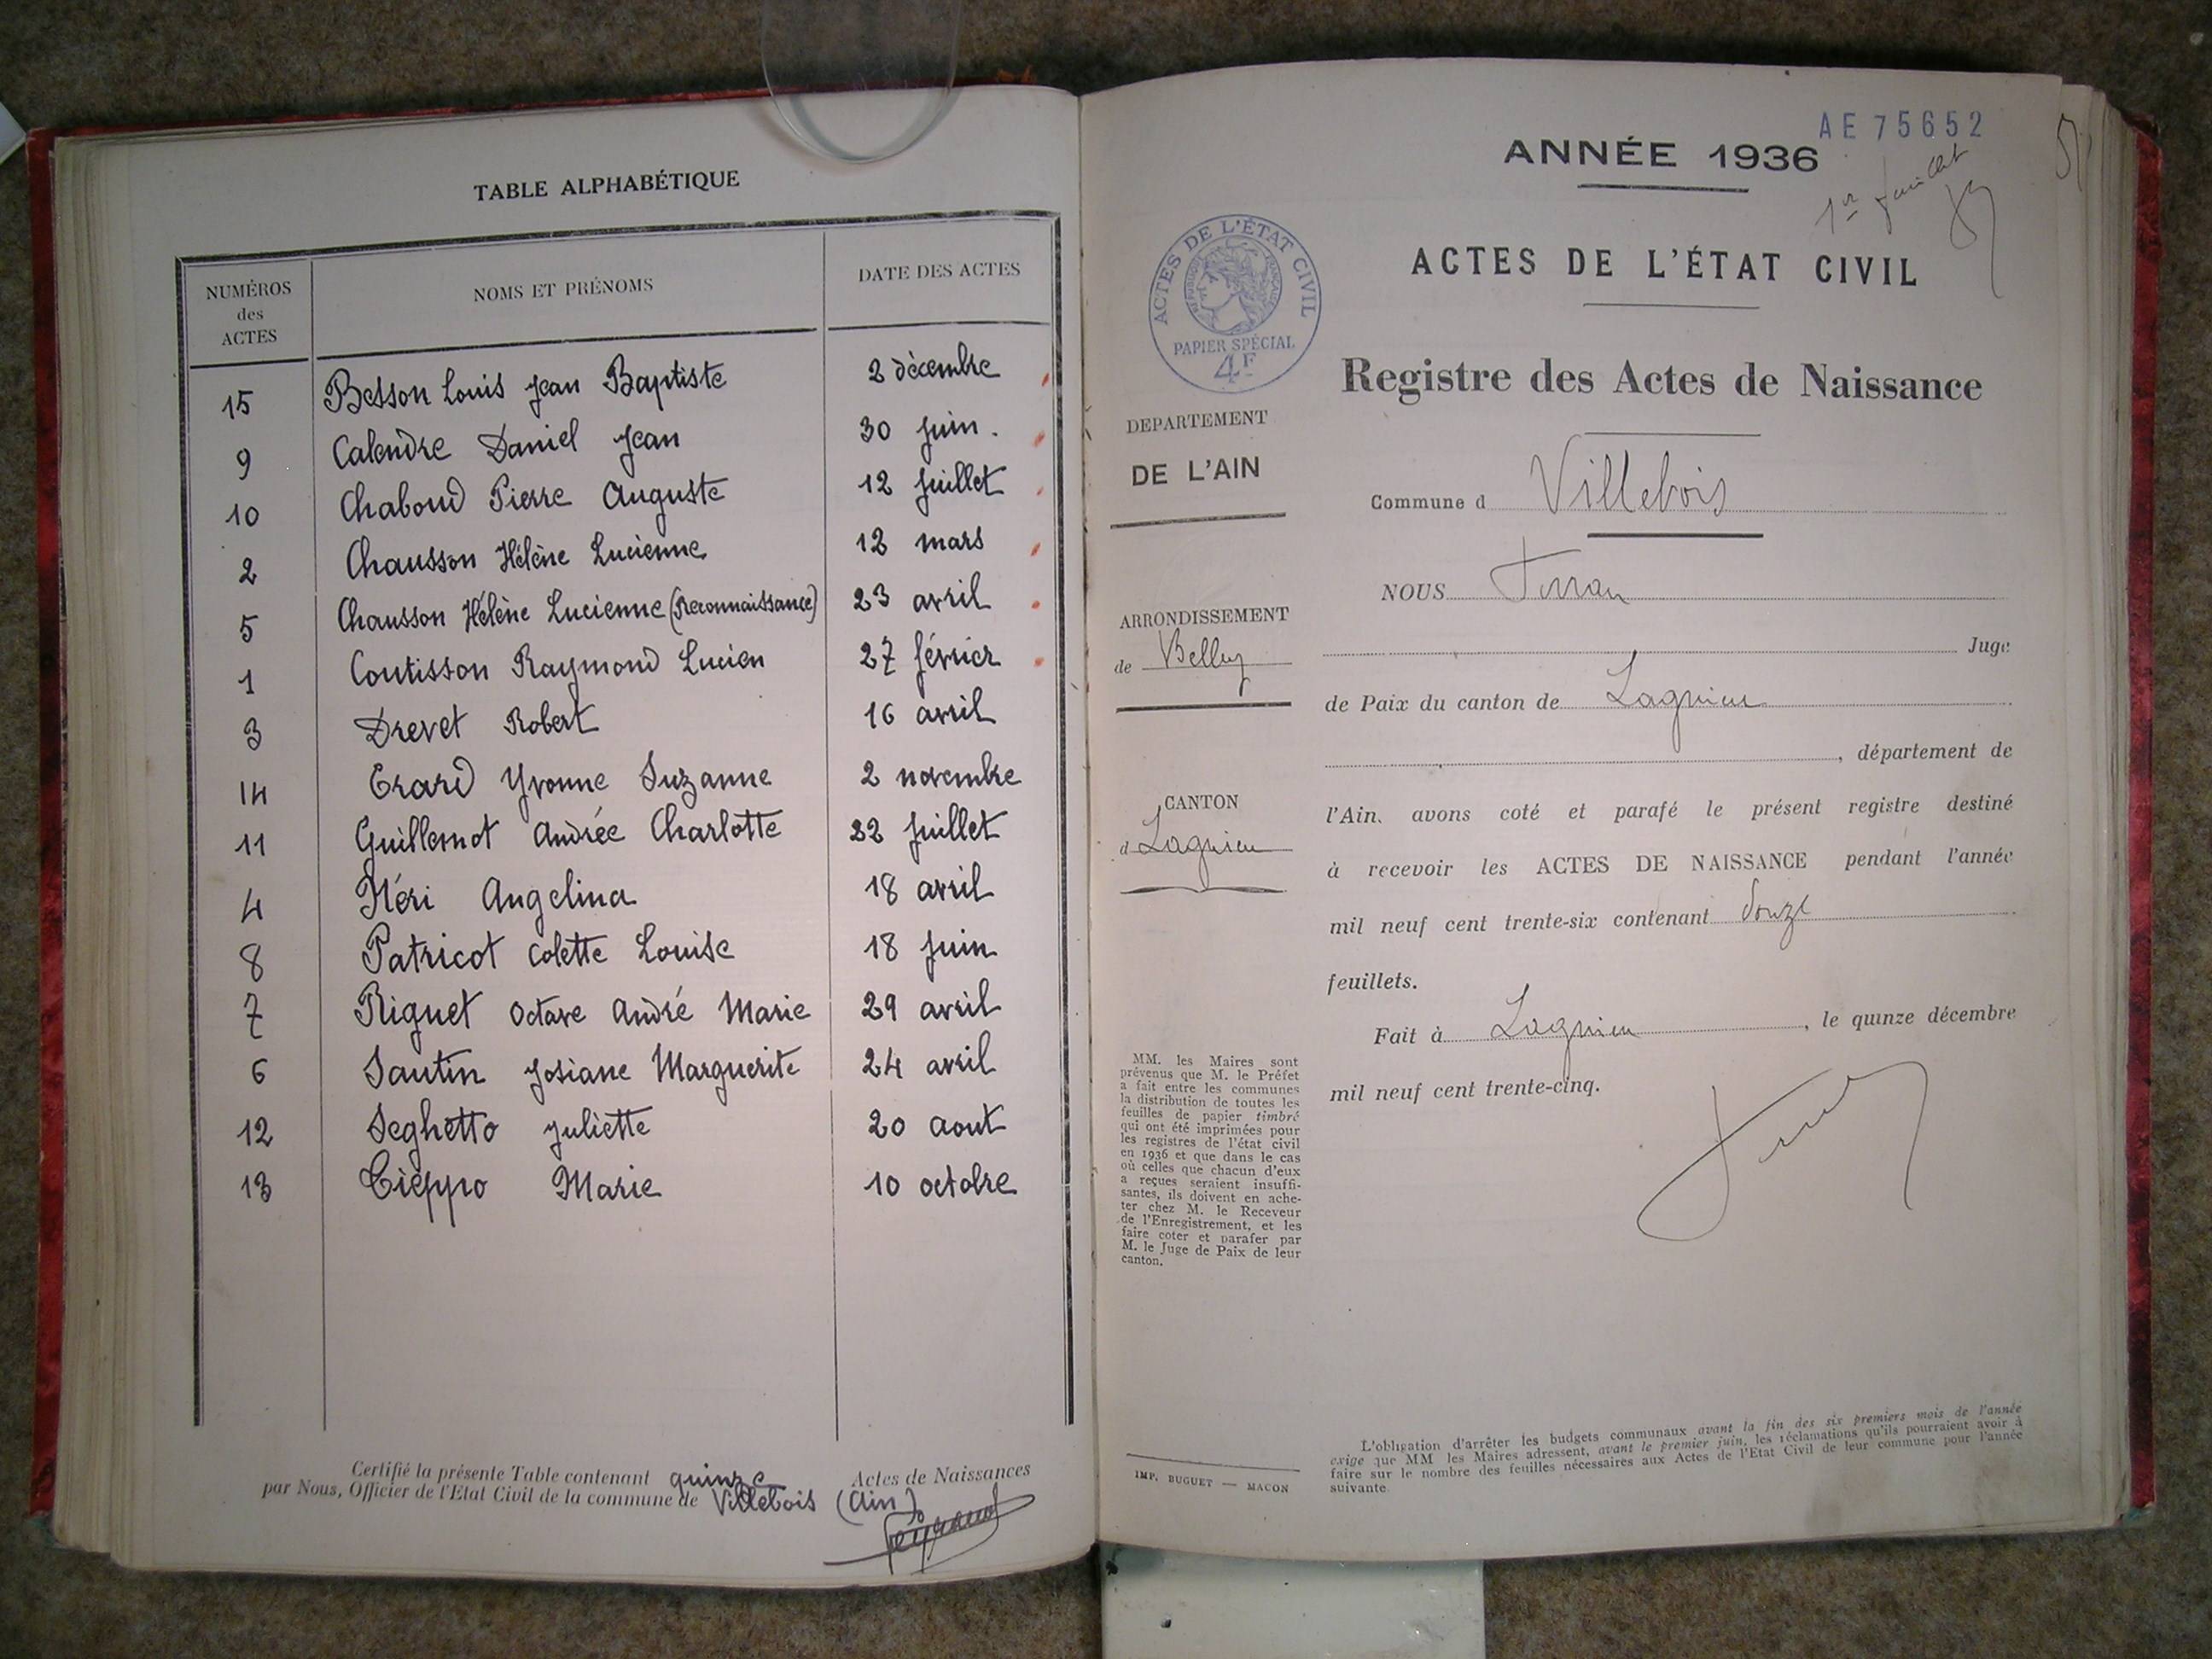 TABLE ALPHABÉTIQUE
NUMÉROS des ACTES
NOMS ET PRÉNOMS
DATE DES ACTES
15 Besson Louis Jean Baptiste 2 décembre
9 Calendre Daniel Jean 30 juin.
10 Chaboud Pierre Auguste 12 juillet
2 Chausson Hélène Lucienne 12 mars
5 Chausson Hélène Lucienne (Reconnaissance) 23 avril
1 Coutisson Raymond Lucien 27 février
3 Drevet Robert 16 avril
14 Erard Yvonne Suzanne 2 novembre
11 Guillemot Andrée Charlotte 22 juillet
4 Méri Angelina 18 avril
8 Patricot Colette Louise 18 juin
7 Riguet Octave André Marie 29 avril
6 Santin Josiane Marguerite 24 avril
12 Seghetto Juliette 20 aout
13 Tieppo Marie 10 octobre
Certifié la présente Table contenant quinze Actes de Naissances
par Nous, Officier de l'Etat Civil de la commune de Villebois (Ain)
AE 75652
ANNÉE 1936
1er Juillet
ACTES DE L'ÉTAT CIVIL
ACTES DE L'ÉTAT CIVIL
RÉPUBLIQUE FRANÇAISE
PAPIER SPÉCIAL
4F
Registre des Actes de Naissance
DEPARTEMENT
DE L'AIN
Commune d Villebois
NOUS
ARRONDISSEMENT
de Belley
Juge
de Paix du canton de Lagnieu
, département de
CANTON
d Lagnieu
l'Ain, avons coté et parafé le présent registre destiné
à recevoir les ACTES DE NAISSANCE pendant l'année
mil neuf cent trente-six contenant douze
feuillets.
Fait à Lagnieu, le quinze décembre
mil neuf cent trente-cinq.
MM. les Maires sont
prévenus que M. le Préfet
a fait entre les communes
la distribution de toutes les
feuilles de papier timbré
qui ont été imprimées pour
les registres de l'état civil
en 1936 et que dans le cas
où celles que chacun d'eux
a reçues seraient insuffi-
santes, ils doivent en ache-
ter chez M. le Receveur
de l'Enregistrement, et les
faire coter et parafer par
M. le Juge de Paix de leur
canton.
IMP. BUGUET — MACON
L'obligation d'arrêter les budgets communaux avant la fin des six premiers mois de l'année
exige que MM les Maires adressent, avant le premier juin, les réclamations qu'ils pourraient avoir à
faire sur le nombre des feuilles nécessaires aux Actes de l'Etat Civil de leur commune pour l'année
suivante